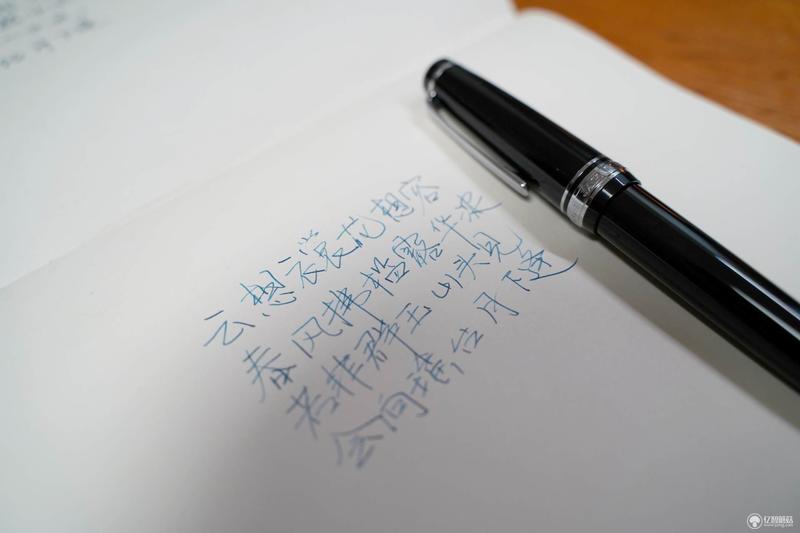 云想衣裳花想容
春风拂槛露华浓
若非群玉山头见
会向瑶台月下逢
亿智蘑菇